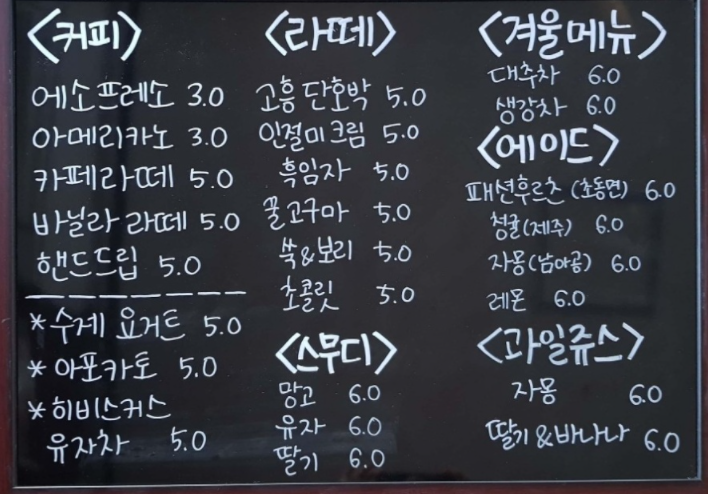 <커피>
에소프레소 3.0
아메리카노 3.0
카페라떼 5.0
바닐라 라떼 5.0
핸드드립 5.0
*수제 요거트 5.0
*아포카토 5.0
*히비스커스
유자차 5.0
<라떼>
고흥 단호박 5.0
인절미크림 5.0
흑임자 5.0
꿀고구마 5.0
쑥&보리 5.0
초콜릿 5.0
<스무디>
망고 6.0
유자 6.0
딸기 6.0
<겨울메뉴>
대추차 6.0
생강차 6.0
<에이드>
패션후르츠 (초동면) 6.0
청귤(제주) 6.0
자몽(남아공) 6.0
레몬 6.0
<과일쥬스>
자몽 6.0
딸기&바나나 6.0